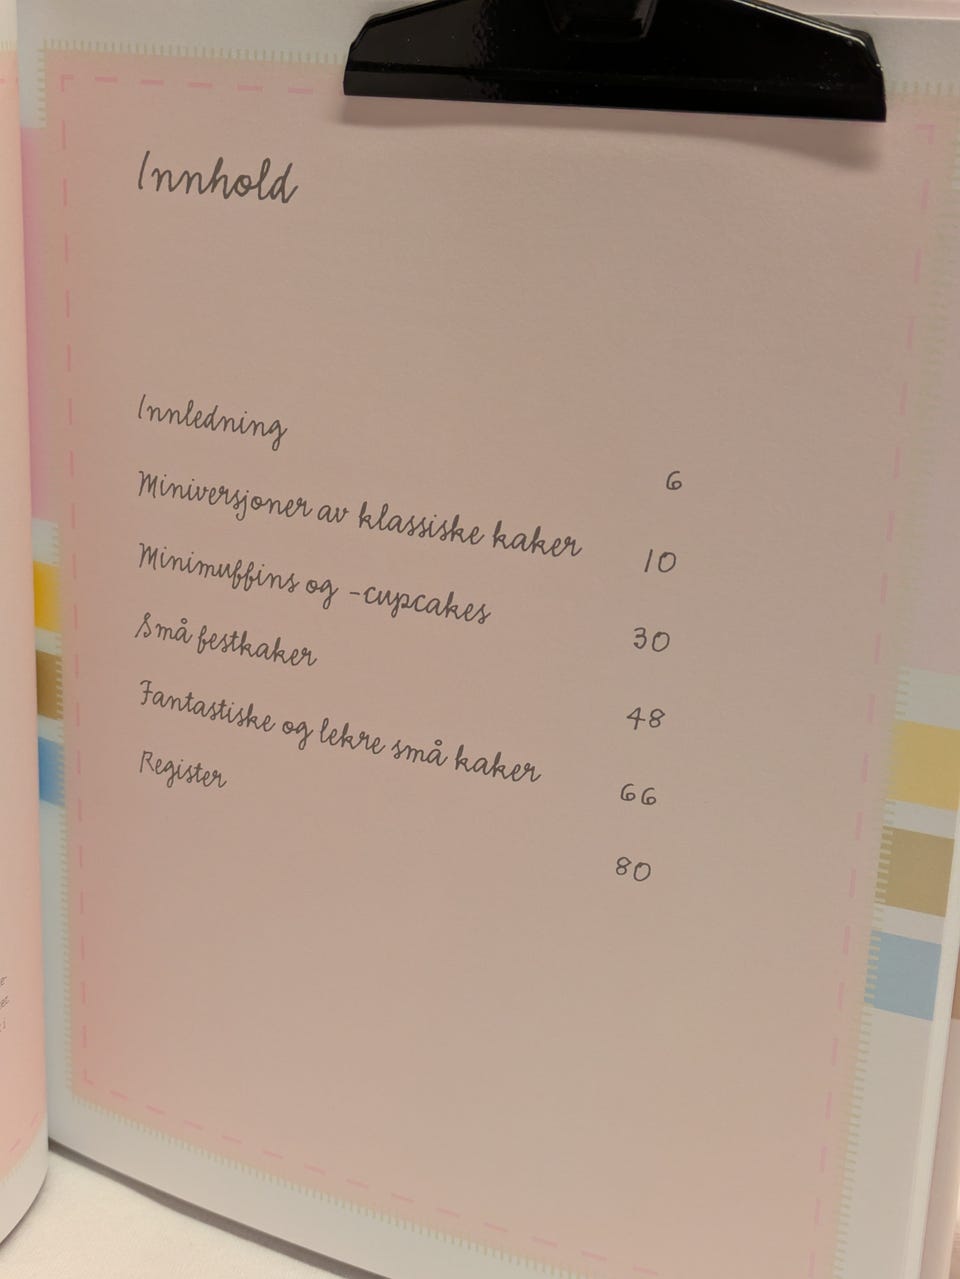 Innhold
Innledning 6
Miniversjoner av klassiske kaker 10
Minimuffins og -cupcakes 30
Små festkaker 48
Fantastiske og lekre små kaker 66
Register 80